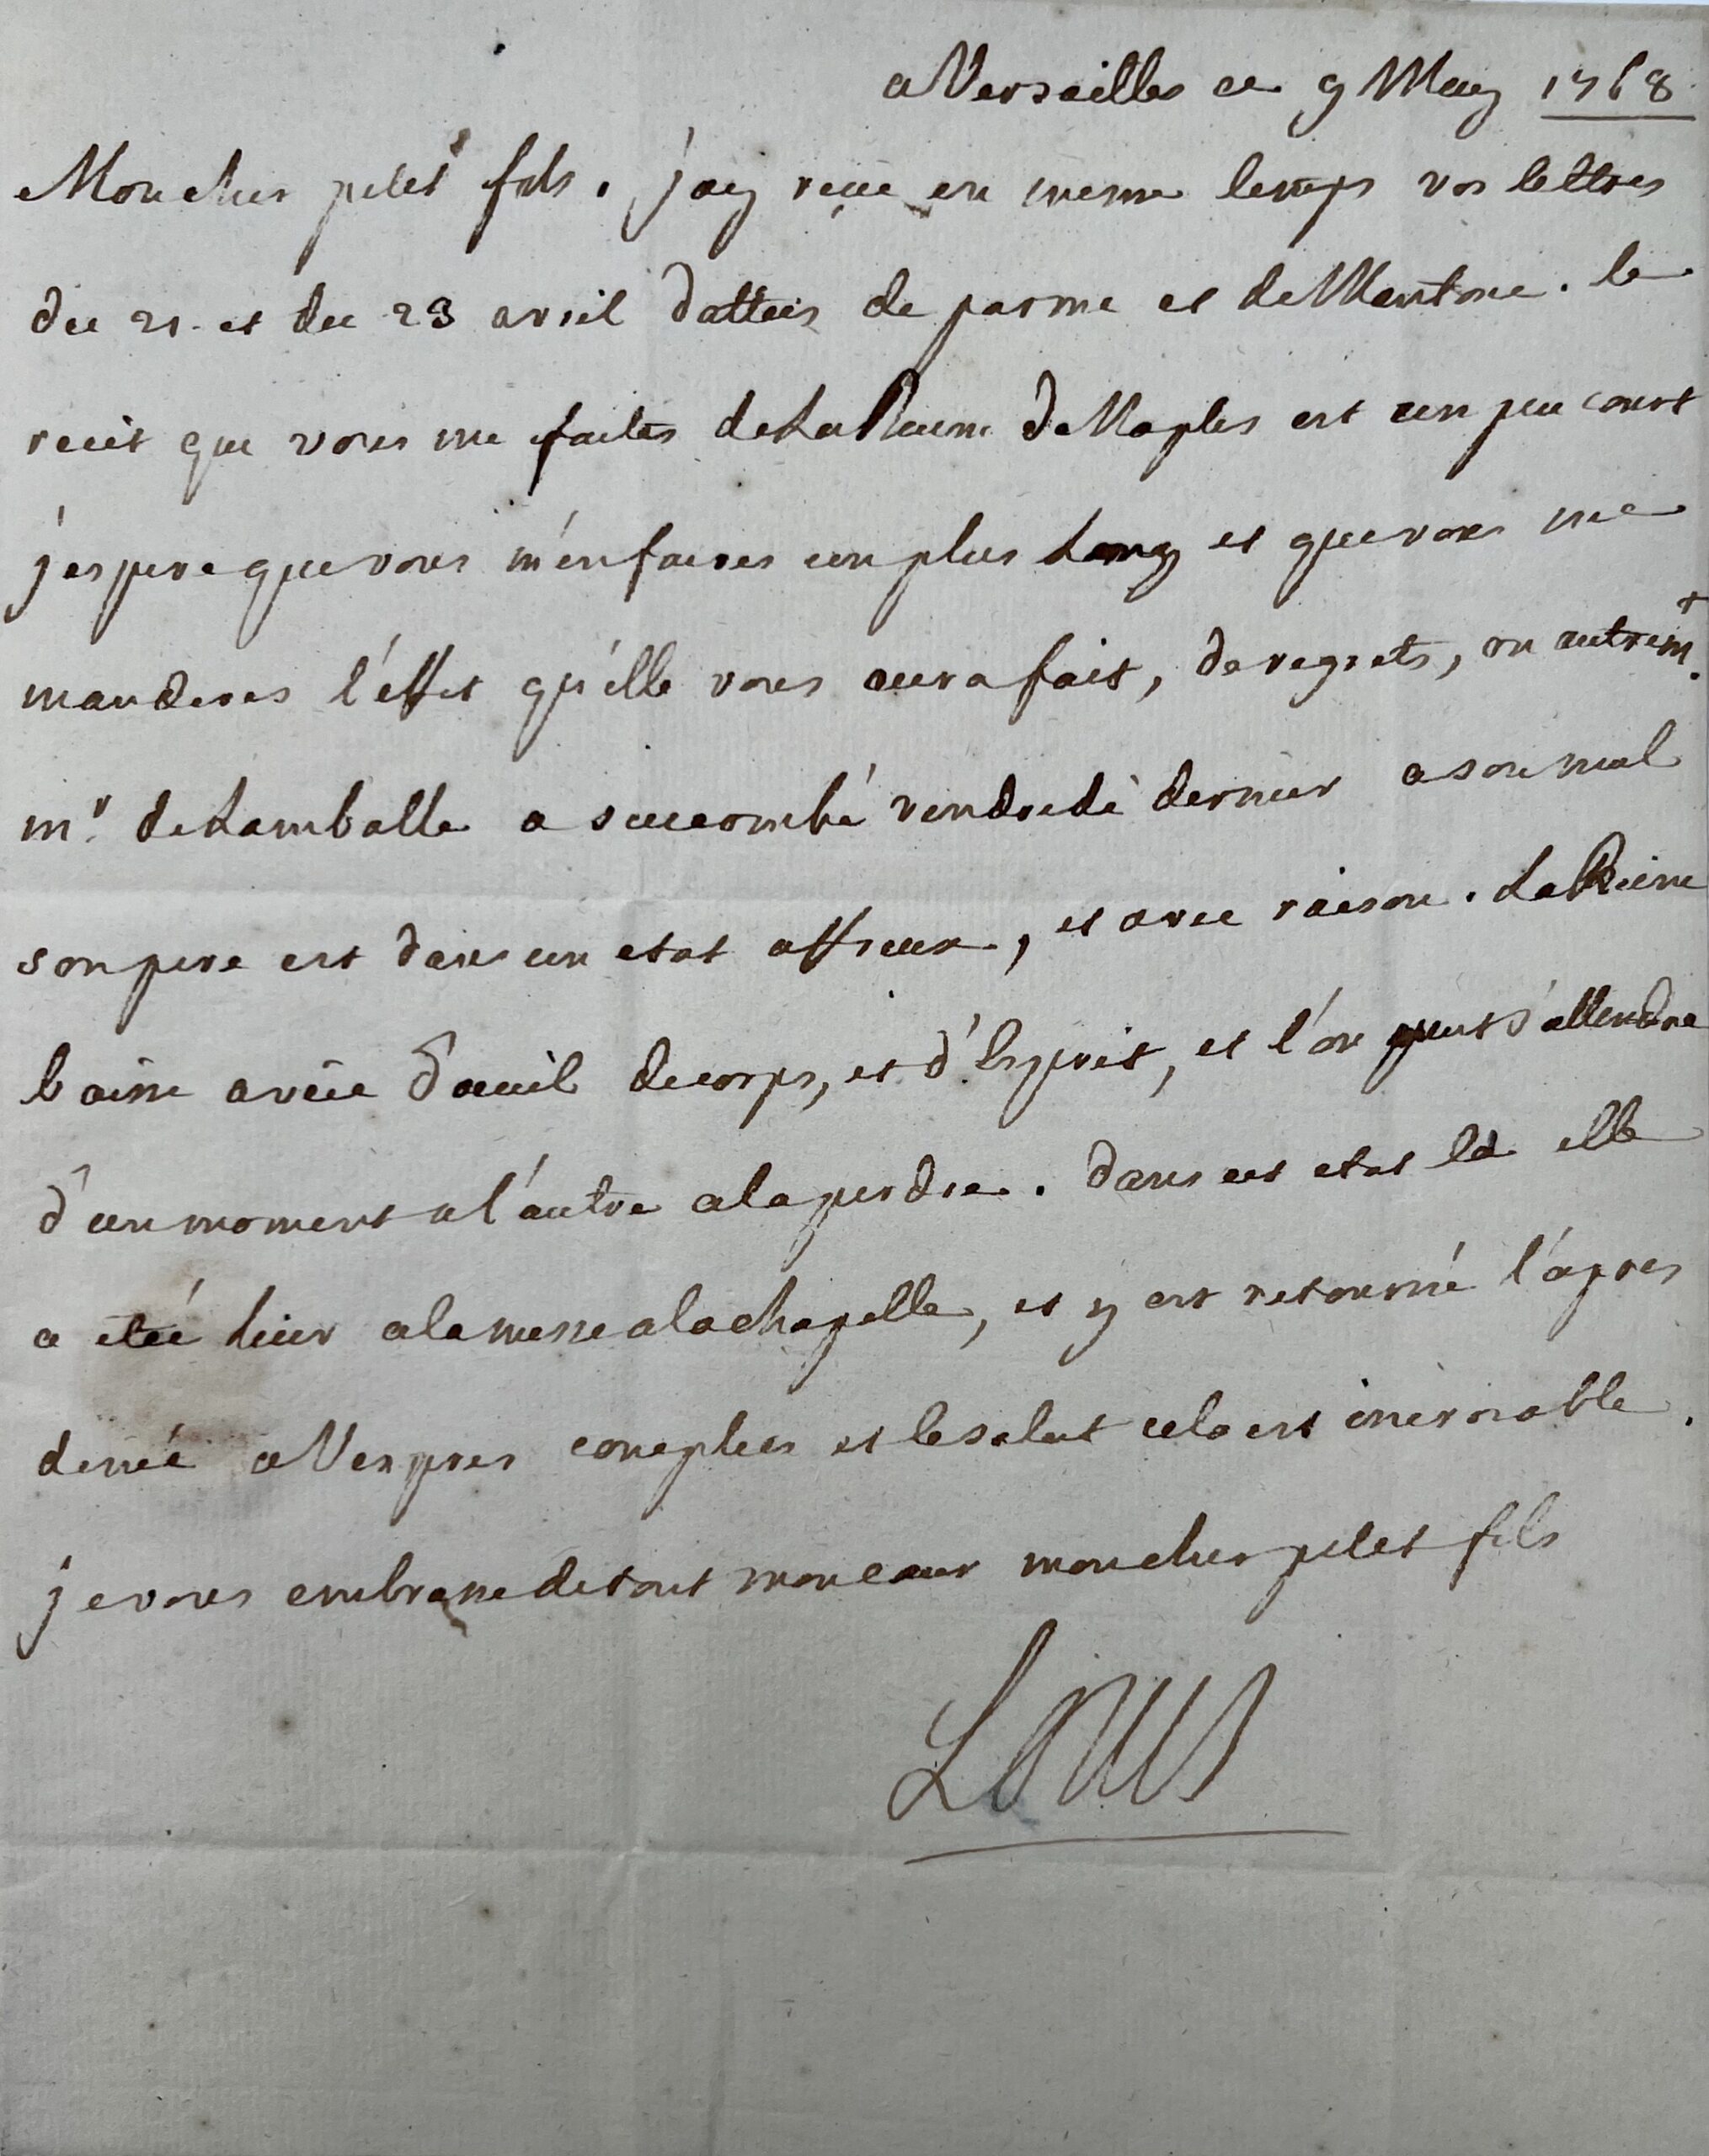 a Versailles ce 9 May 1768
Mon cher petit fils. j'ay reçue en mesme temps vos lettres
du 21. et du 23 avril dattées de parme et de Mantoue. le
recit que vous me faites de La Reine de Naples est un peu court
j'espere que vous m'en faires un plus Long et que vous me
manderes l'effet qu'elle vous aura fait, de regrets, ou autremt.
mr. de Lamballe a succombé vendredi dernier a son mal
son pere est dans un etat affreux, et avec raison. La Reine
baisse a vüe d'oeuil de corps, et d'esprit, et l'on peut s'attendre
d'un moment a l'autre a la perdre. dans cet etat la elle
a eté hier a la messe a la chapelle, et y est retourné l'apres
dinée a Vespres complies et le salut cela est incroiable.
je vous embrasse de tout mon cœur mon cher petit fils
Louis